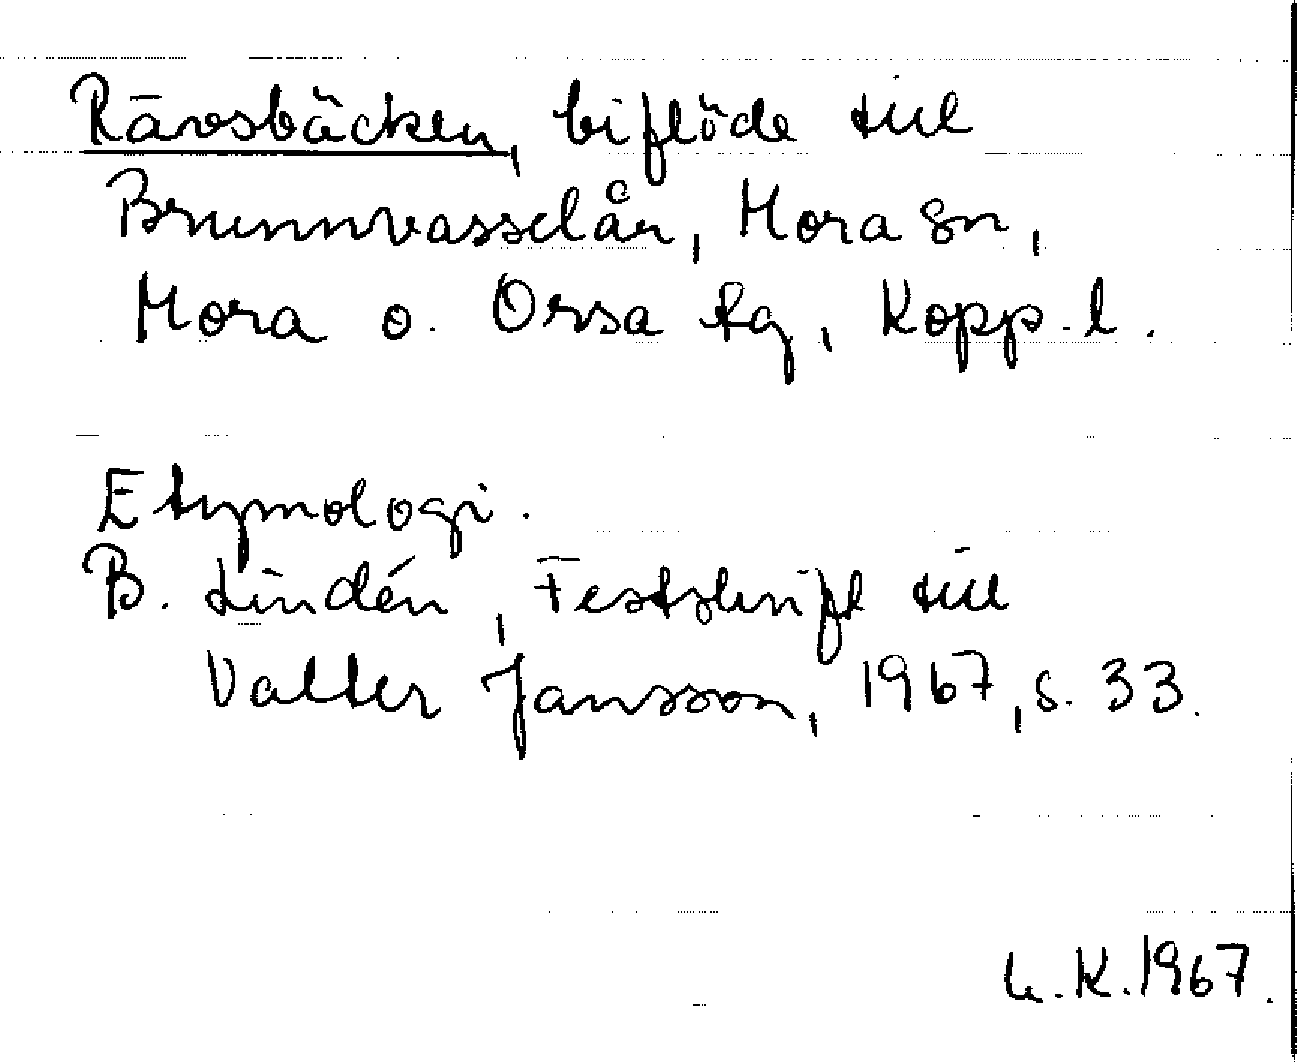 Rävsbäcken, biflöde till
Brunnvasselån, Mora sn,
Mora o. Orsa tg, Kopp. l.
Etymologi.
B. Lindén, Festskrift till
Valter Jansson, 1967, s. 33.
K. 1967.